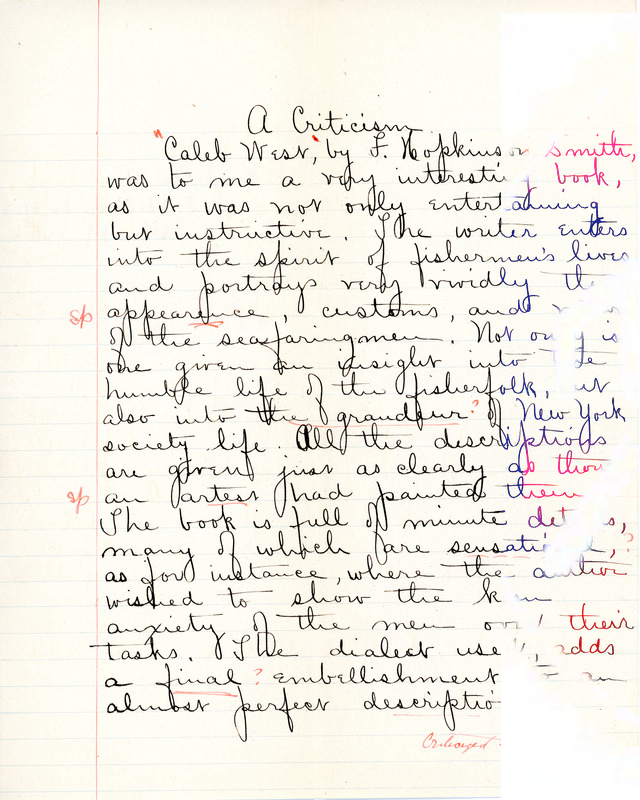 A Criticism
"Caleb West," by F. Hopkinson Smith,
was to me a very interesting book,
as it was not only entertaining
but instructive. The writer enters
into the spirit of fishermen's lives
and portrays very vividly the
sp appearence, customs, and
of the seafaringmen. Not only is
one given an insight into the
humble life of the fisherfolk, but
also into the grandeur? of New York
society life. All the descriptions
are given just as clearly as though
sp an artest had painted them
The book is full of minute details,
many of which are sensational,?
as for instance, where the author
wished to show the
anxiety of the men over their
tasks. The dialect used, adds
a final? embellishment to an
almost perfect descriptio
Criticized